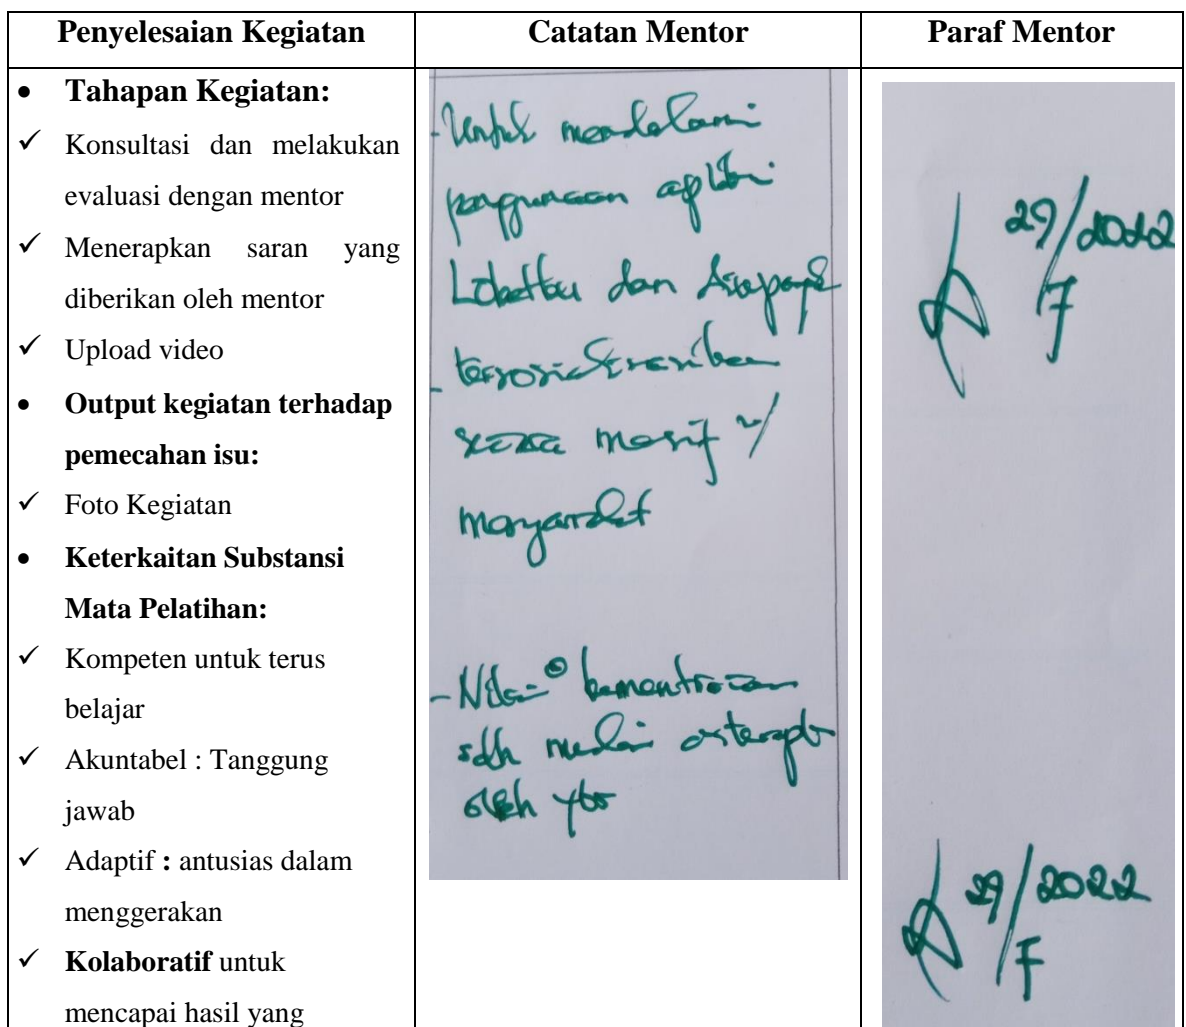 Penyelesaian Kegiatan
Catatan Mentor
Paraf Mentor
• Tahapan Kegiatan:
✓ Konsultasi dan melakukan
evaluasi dengan mentor
✓ Menerapkan saran yang
diberikan oleh mentor
✓ Upload video
• Output kegiatan terhadap
pemecahan isu:
✓ Foto Kegiatan
• Keterkaitan Substansi
Mata Pelatihan:
✓ Kompeten untuk terus
belajar
✓ Akuntabel : Tanggung
jawab
✓ Adaptif : antusias dalam
menggerakan
✓ Kolaboratif untuk
mencapai hasil yang
- Untuk mendalami
penggunaan
dan
-
masif
masyarakat
- Nilai
sdh mulai
oleh ybs
29/7 2022
29/7 2022